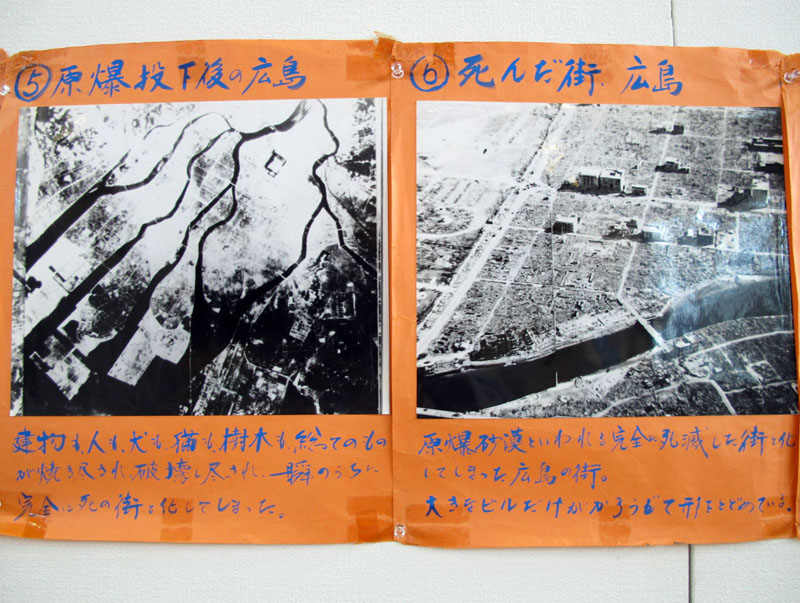 ⑤原爆投下後の広島
建物も、人も、犬も、猫も、樹木も、総てのもの
が焼き尽され、破壊し尽され、一瞬のうちに
完全に死の街と化してしまった。
⑥死んだ街、広島
原爆砂漠といわれる完全に死滅した街と化
してしまった広島の街。
大きなビルだけがかろうじて形をとどめている。